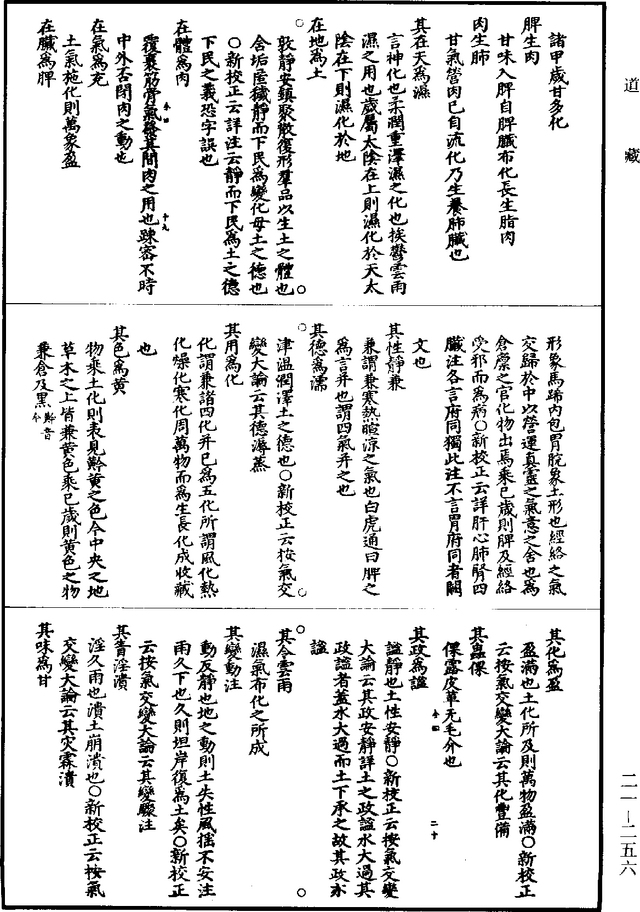 道藏
諸甲歲甘多化
脾生肉
甘味入脾自脾臟布化長生脂肉
肉生肺
甘氣營肉已自流化乃生養肺臟也
其在天為濕
言神化也柔潤重澤濕之化也挨鬱雲雨
濕之用也歲屬太陰在上則濕化於天太
陰在下則濕化於地
在地為土
敦靜安鎮聚散復形羣品以生土之體也
含垢居穢靜而下民為變化母土之德也
○新校正云詳注云靜而下民為土之德
下民之義恐字誤也
在體為肉
覆裹筋骨氣發其間肉之用也踈密不時
中外否閉肉之動也
在氣為充
土氣施化則萬象盈
在臟為脾
形象馬蹄內包胃脘象土形也經絡之氣
交歸於中以營運真靈之氣意之舍也為
倉廩之官化物出焉乘已歲則脾及經絡
受邪而為病○新校正云詳肝心肺腎四
臟注各言府同獨此注不言胃府同者闕
文也
其性靜兼
兼謂兼寒熱暄涼之氣也白虎通曰脾之
為言并也謂四氣并之也
其德為濡
津溫潤澤土之德也○新校正云按氣交
變大論云其德溽蒸
其用為化
化謂兼諸四化并已為五化所謂風化熱
化燥化寒化周萬物而為生長化成收藏
也
其色為黃
物乘土化則表見黅黃之色今中央之地
草木之上皆兼黃色乘已歲則黃色之物
兼倉及黑黅音今
其化為盈
盈滿也土化所及則萬物盈滿○新校正
云按氣交變大論云其化豐備
其蟲倮
倮露皮革无毛介也
其政為謐
謐靜也土性安靜○新校正云按氣交變
大論云其政安靜詳土之政謐水大過其
政謐者蓋水大過而土下承之故其政亦
謐
其令雲雨
濕氣布化之所成
其變動注
動反靜也地之動則土失性風揺不安注
雨久下也久則坦岸復為土矣○新校正
云按氣交變大論云其變驟注
其眚淫潰
淫久雨也潰土崩潰也○新校正云按氣
交變大論云其灾霖潰
其味為甘
二一—二五六